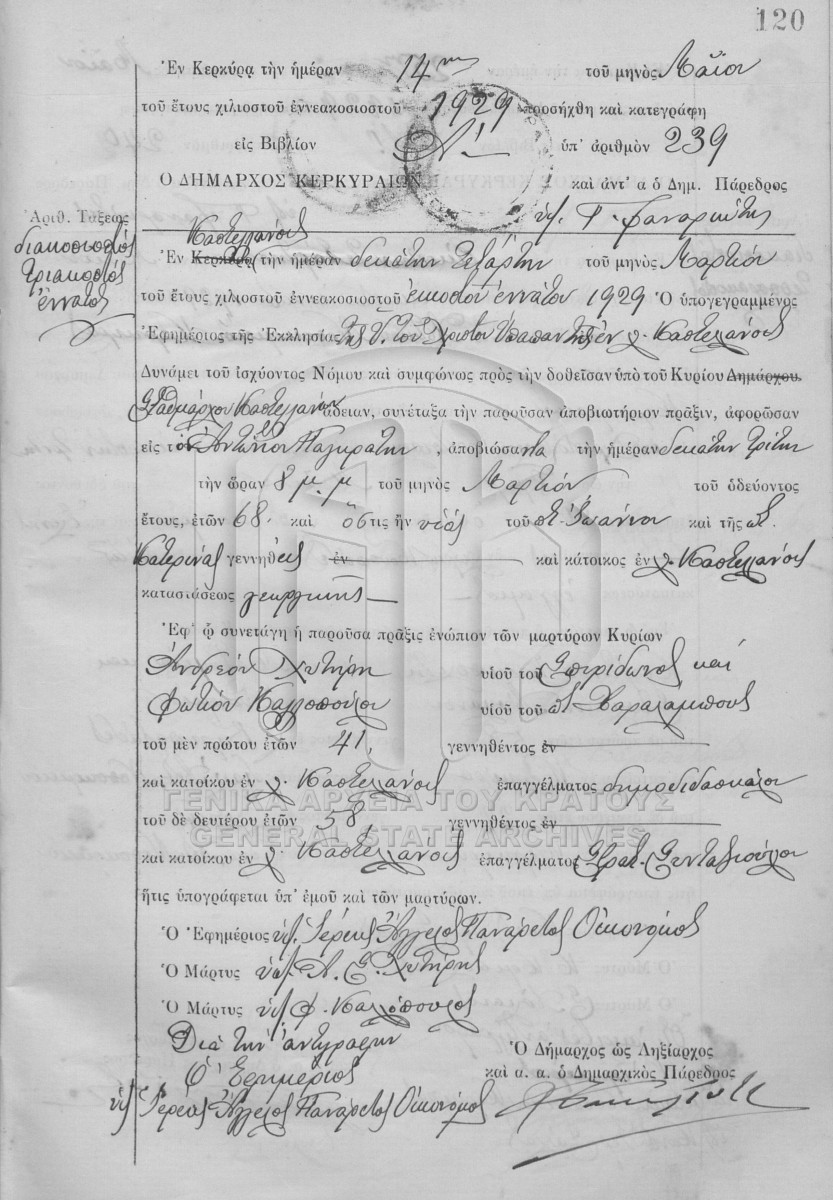 120
Ἐν Κερκύρᾳ τὴν ἡμέραν 14ην τοῦ μηνὸς Μαΐου
τοῦ ἔτους χιλιοστοῦ ἐννεακοσιοστοῦ 1929 προσήχθη καὶ κατεγράφη
εἰς Βιβλίον Α΄ ὑπ' ἀριθμὸν 239
Ο ΔΗΜΑΡΧΟΣ ΚΕΡΚΥΡΑΙΩΝ καὶ ἀντ' α ὁ Δημ. Πάρεδρος
Ἀριθ. Τάξεως
διακοσιοστὸς
τριακοστὸς
ἔννατος
Καστελλάνοις
Ἐν Κερκύρᾳ τὴν ἡμέραν δεκάτην τετάρτην τοῦ μηνὸς Μαρτίου
τοῦ ἔτους χιλιοστοῦ ἐννεακοσιοστοῦ εἰκοστοῦ ἐννάτου 1929 Ὁ ὑπογεγραμμένος
Ἐφημέριος τῆς Ἐκκλησίας τῆς Ὑ. τοῦ Χριστοῦ Ὑπαπαντῆς ἐν χ. Καστελλάνοις
Δυνάμει τοῦ ἰσχύοντος Νόμου καὶ συμφώνως πρὸς τὴν δοθεῖσαν ὑπὸ τοῦ Κυρίου Δημάρχου
Σταθμάρχου Καστελλάνων ἄδειαν, συνέταξα τὴν παροῦσαν ἀποβιωτήριον πρᾶξιν, ἀφορῶσαν
εἰς τὸν Ἀντώνιον Παγκράτην, ἀποβιώσαντα τὴν ἡμέραν δεκάτην τρίτην
τὴν ὥραν 8 μ.μ τοῦ μηνὸς Μαρτίου τοῦ ὁδεύοντος
ἔτους, ἐτῶν 68. καὶ ὅστις ἦν υἱὸς τοῦ ποτ. Ἰωάννου καὶ τῆς ποτ.
Κατερίνας γεννηθεὶς ἐν καὶ κάτοικος ἐν χ. Καστελλάνοις
καταστάσεως γεωργικῆς
Ἐφ' ᾧ συνετάγη ἡ παροῦσα πρᾶξις ἐνώπιον τῶν μαρτύρων Κυρίων
Ἀνδρέου Χυτήρη υἱοῦ τοῦ Σπυρίδωνος καὶ
Φωτίου Καλοπούλου υἱοῦ τοῦ ποτ Χαραλάμπους
τοῦ μὲν πρώτου ἐτῶν 41, γεννηθέντος ἐν
καὶ κατοίκου ἐν χ. Καστελλάνοις ἐπαγγέλματος δημοδιδασκάλου
τοῦ δὲ δευτέρου ἐτῶν 58, γεννηθέντος ἐν
καὶ κατοίκου ἐν χ. Καστελλάνοις ἐπαγγέλματος Στρατ. Συνταξιούχου
ἥτις ὑπογράφεται ὑπ' ἐμοῦ καὶ τῶν μαρτύρων.
Ὁ Ἐφημέριος υπ. Ἱερεὺς Ἄγγελος Πανάρετος Οἰκονόμος
Ὁ Μάρτυς υπ. Α. Σ. Χυτήρης
Ὁ Μάρτυς υπ. Φ. Καλόπουλος
Διὰ τὴν ἀντιγραφὴν
Ὁ Ἐφημέριος
υπ. Ἱερεὺς Ἄγγελος Πανάρετος Οἰκονόμος
Ὁ Δήμαρχος ὡς Ληξίαρχος
καὶ α. α. ὁ Δημαρχικὸς Πάρεδρος
ΓΕΝΙΚΑ ΑΡΧΕΙΑ ΤΟΥ ΚΡΑΤΟΥΣ
GENERAL STATE ARCHIVES